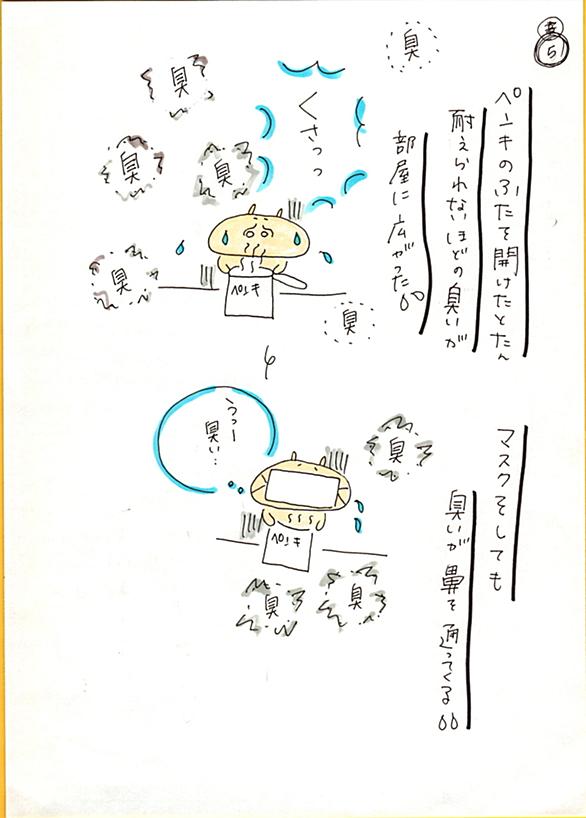 5
ペンキのふたを開けたとたん
耐えられないほどの臭いが
部屋に広がった
臭
くさっっ
臭
臭
臭
臭
臭
ペンキ
マスクをしても
臭いが鼻を通ってくる
臭
うっー
臭い…
ペンキ
臭
臭